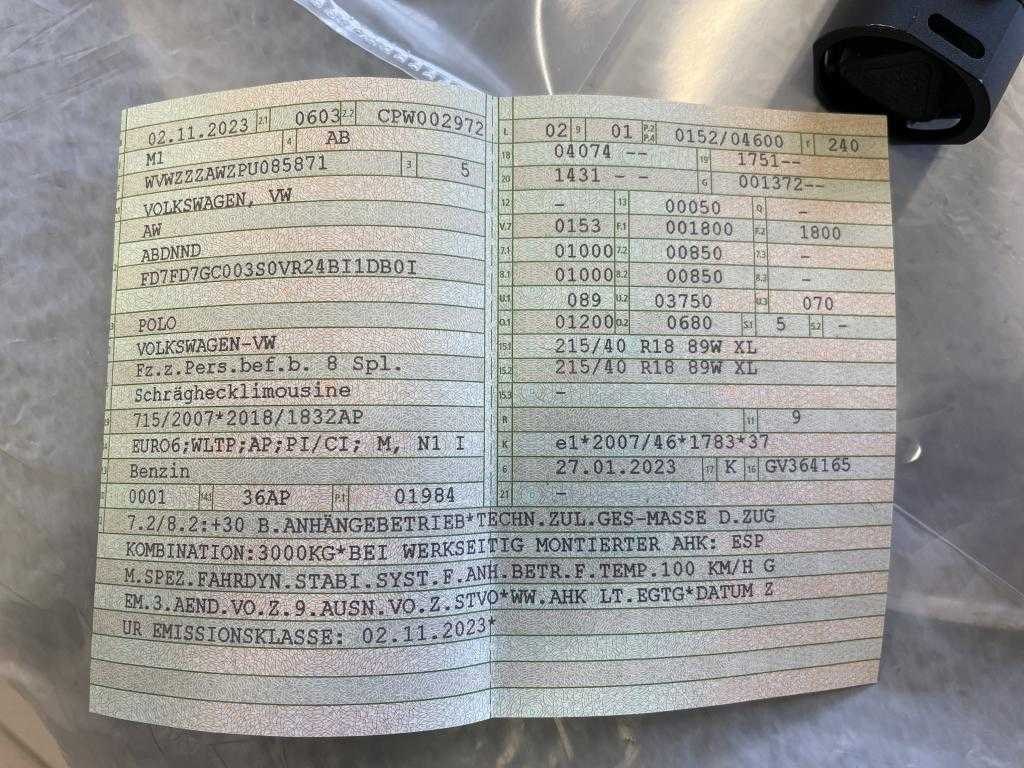 02.11.2023 2.1 0603 2.2 CPW002972
M1 4 AB
WVWZZZAWZPU085871 3 5
VOLKSWAGEN, VW
AW
ABDNND
FD7FD7GC003S0VR24BI1DB0I
POLO
VOLKSWAGEN-VW
Fz.z.Pers.bef.b. 8 Spl.
Schräghecklimousine
715/2007*2018/1832AP
EURO6;WLTP;AP;PI/CI; M, N1 I
Benzin
0001 14.1 36AP P.1 01984
L 02 9 01 P.2 P.4 0152/04600 T 240
18 04074 -- 19 1751--
20 1431 - - G 001372--
12 - 13 00050 Q -
V.7 0153 F.1 001800 F.2 1800
7.1 01000 7.2 00850 7.3 -
8.1 01000 8.2 00850 8.3 -
U.1 089 U.2 03750 U.3 070
O.1 01200 O.2 0680 S.1 5 S.2 -
15.1 215/40 R18 89W XL
15.2 215/40 R18 89W XL
15.3 -
R 11 9
K e1*2007/46*1783*37
6 27.01.2023 17 K 16 GV364165
21 -
7.2/8.2:+30 B.ANHÄNGEBETRIEB*TECHN.ZUL.GES-MASSE D.ZUG
KOMBINATION:3000KG*BEI WERKSEITIG MONTIERTER AHK: ESP
M.SPEZ.FAHRDYN.STABI.SYST.F.ANH.BETR.F.TEMP.100 KM/H G
EM.3.AEND.VO.Z.9.AUSN.VO.Z.STVO*WW.AHK LT.EGTG*DATUM Z
UR EMISSIONSKLASSE: 02.11.2023*